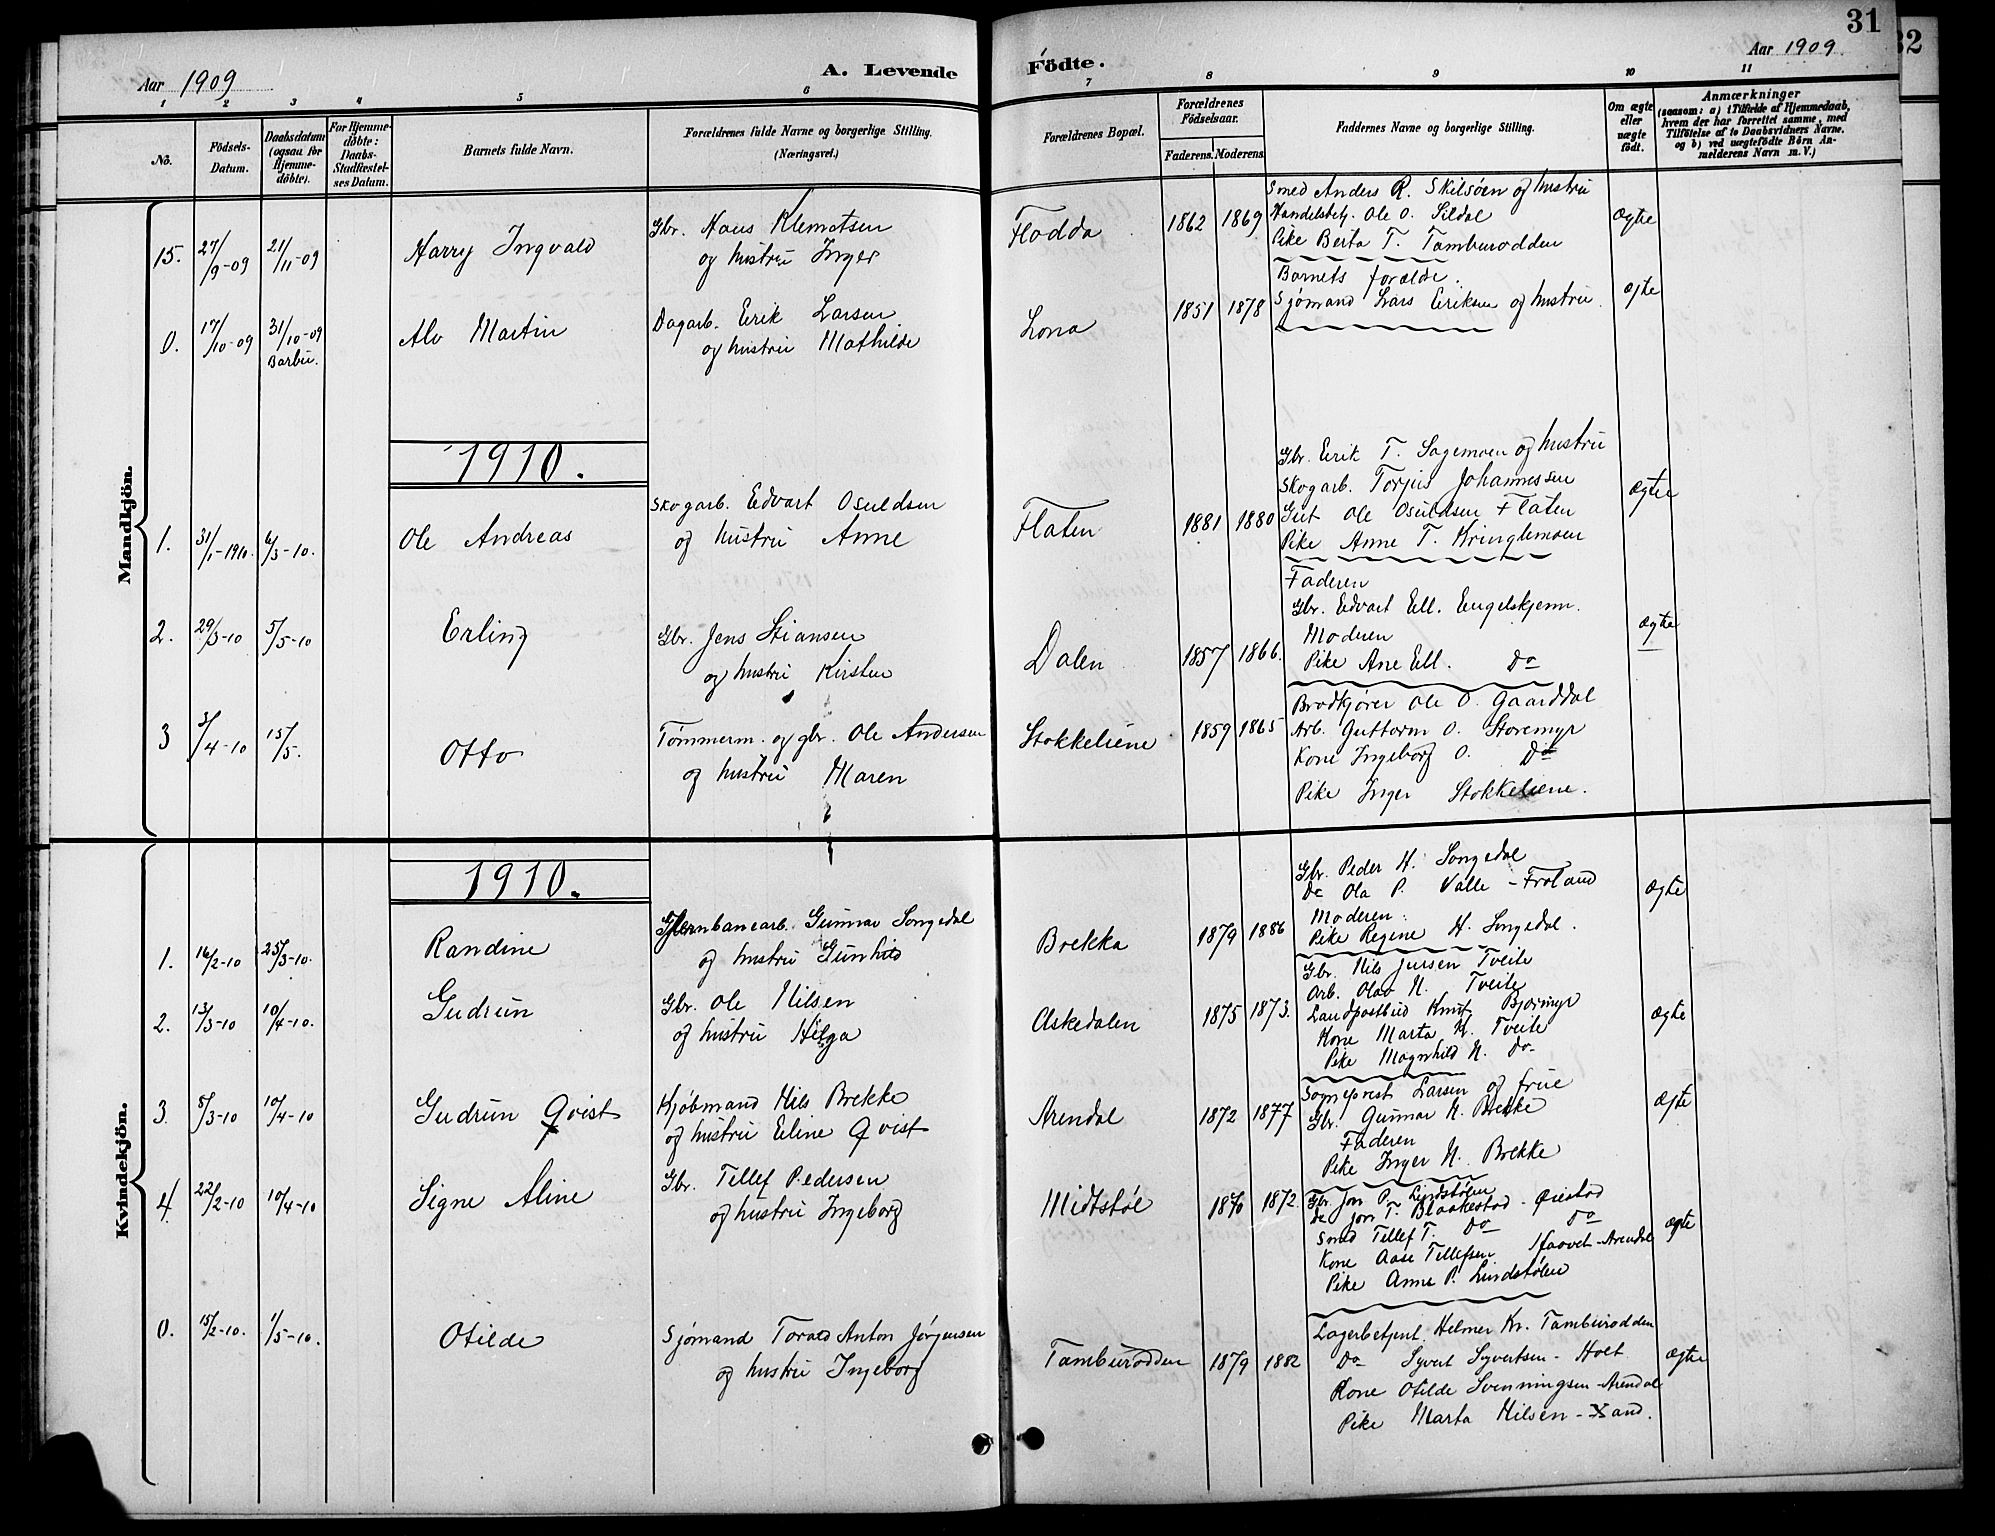 31
32
Aar 1909
A. Levende
Födte.
Aar 1909.
1 2 3 4 5 6 7 8 9 10 11
No.
Födsels-
Datum.
Daabsdatum
(ogsaa for
Hjemme-
döbte).
For Hjemme-
döbte:
Daabs-
Stadfæstel-
ses Datum.
Barnets fulde Navn.
Forældrenes fulde Navne og borgerlige Stilling.
(Næringsvei.)
Forældrenes Bopæl.
Forældrenes
Födselsaar.
Faderens. Moderens.
Faddernes Navne og borgerlige Stilling.
Om ægte
eller
uægte
födt.
Anmærkninger
(saasom: a) i Tilfælde af Hjemmedaab,
hvem der har forrettet samme, med
Tilföielse af to Daabsvidners Navne.
og b) ved uægtefödte Börn An-
melderens Navn m. V.)
Mandkjön.
15. 27/9-09 21/11-09 Harry Ingvald
Gbr. Hans Klemetsen
og hustru Inger
Flodda 1862 1869
Smed Anders R. Skilsöen og hustru
Handelsbetj. Ole O. Sildal
Pike Berta T. Tamburodden
Ægte
0. 17/10-09 31/10-09 Barbu. Alv Martin
Dagarb. Eirik Larsen
og hustru Mathilde
Lona 1851 1878
Barnets forældre.
Sjømand Lars Eriksen og hustru.
Ægte
1910.
1. 31/1-1910. 6/3-10. Ole Andreas
Skogarb. Edvart Osuldsen
og hustru Anne
Flaten 1881 1880
Gbr. Eirik T. Sagemoen og hustru
Skogarb. Torjus Johannessen
Gut Ole Osuldsen Flaten
Pike Anne T. Kringlemoen
Ægte
2. 29/3-10 5/5-10 Erling
Gbr. Jens Stiansen
og hustru Kirsten
Dalen 1857 1866.
Faderen
Gbr. Edvart Ell. Engelskjønn.
Moderen
Pike Ane Ell. Do
Ægte
3 3/4-10 15/5. Otto
Tømmerm. og gbr. Ole Andersen
og hustru Maren
Stokkeliene 1859 1865
Brødkjører Ole O. Gaarddal
Arb. Guttorm O. Storemyr
Kone Ingeborg O. Do
Pike Inger Stokkeliene.
Kvindekjön.
1910.
1. 16/2-10 25/3-10. Randine
Jernbanearb. Gunnar Songedal
og hustru Gunhild
Brekka 1879 1886
Gbr. Peder H. Songedal
Do Ola P. Valle - Froland
Moderen.
Pike Regene H. Songedal.
Ægte
2. 13/3-10 10/4-10. Gudrun
Gbr. Ole Nilsen
og hustru Helga
Askedalen 1875 1873.
Gbr. Nils Jensen Tveite
Arb. Olav N. Tveite
Landpostbud Knut Bjormyr
Kone Marta N. Tveite
Pike Magnhild N. Do
Ægte
3. 8/3-10 10/4-10 Gudrun Qvist
Kjøbmand Nils Brekke
og hustru Eline Qvist
Arendal 1872 1877
Sogneprest Larsen og frue
Gbr. Gunnar N. Brekke
Faderen
Pike Inger N. Brekke
Ægte
4. 22/2-10 10/4-10 Signe Aline
Gbr. Tellef Pedersen
og hustru Ingeborg
Midtstøl 1870 1872.
Gbr. Jon P. Lindstølen
do Jon T. Blaakestad - Øiestad
Smed Tellef T. Do Do
Kone Aase Tellefsen - Arendal
Pike Anne P. Lindstølen
Ægte
0. 15/2-10. 1/5-10. Otilde
Sjømand Torald Anton Jørgensen
og hustru Ingeborg
Tamburodden 1879 1882
Lagerbetjent Helmer Kr. Tamburodden
Do Syvert Syvertsen - Holt
Kone Otilde Svenningsen - Arendal
Pike Marta Nilsen - Xand.
Ægte